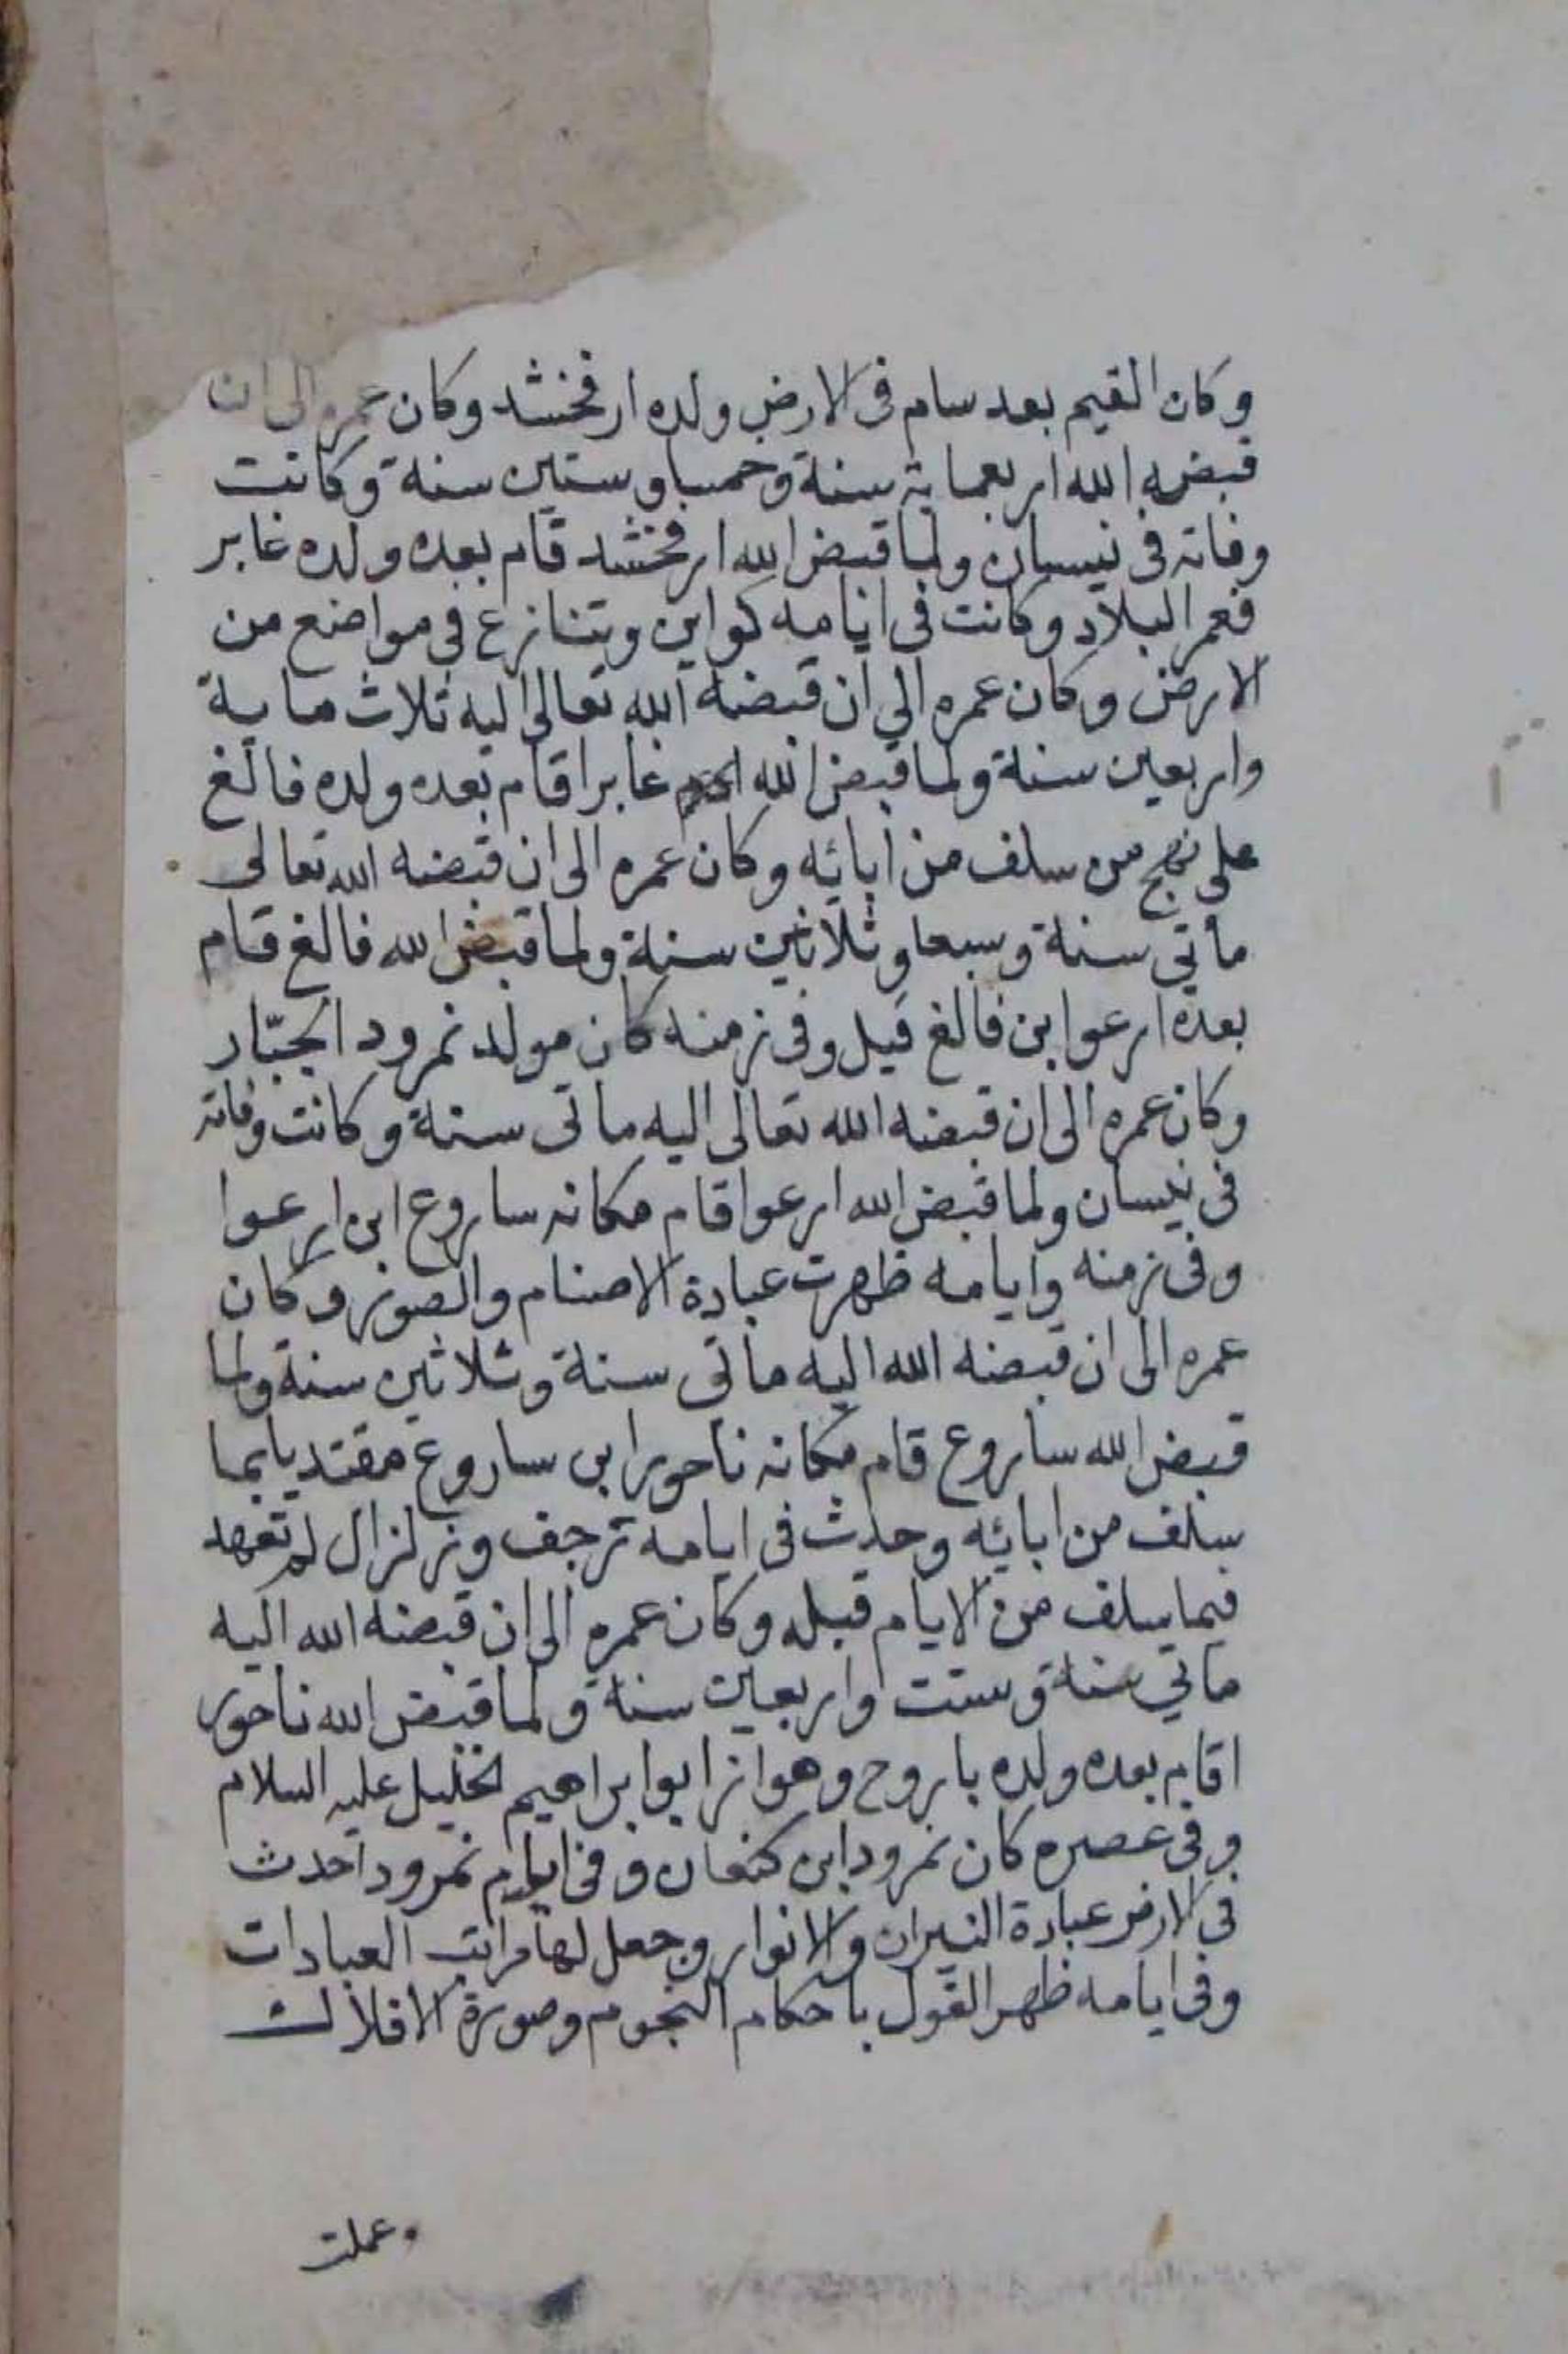 وكان القيم بعد سام فى الارض ولده ارفخشد وكان عمره الى ان
قبضه الله اربعماية سنة وخمسا وستين سنة وكانت
وفاته فى نيسان ولما قبض الله ارفخشد قام بعده ولده غابر
فعمر البلاد وكانت فى ايامه كواين وتنازع فى مواضع من
الارض وكان عمره الى ان قبضه الله تعالى اليه ثلاث ماية
واربعين سنة ولما قبض الله غابرا قام بعده ولده فالغ
على نهج من سلف من ابائه وكان عمره الى ان قبضه الله تعالى
مأتي سنة وسبعا وثلاثين سنة ولما قبض الله فالغ قام
بعده ارعوا بن فالغ قيل وفى زمنه كان مولد نمرود الجبّار
وكان عمره الى ان قبضه الله تعالى اليه ماتى سنة وكانت وفاته
فى نيسان ولما قبض الله ارعوا قام مكانه ساروغ ابن ارعوا
وفى زمنه وايامه ظهرت عبادة الاصنام والصور وكان
عمره الى ان قبضه الله اليه مأتى سنة وثلاثين سنة ولما
قبض الله ساروغ قام مكانه ناحور ابن ساروغ مقتديا بما
سلف من ابائه وحدث فى ايامه ترجف وزلزال لم تعهد
فيما سلف من الايام قبله وكان عمره الى ان قبضه الله اليه
ماتي سنة وستت واربعين سنة ولما قبض الله ناحور
اقام بعده ولده باروح وهو ازر ابوا براهيم الخليل عليه السلام
وفى عصره كان نمرود ابن كنعان وفى ايام نمرود احدث
فى الارض عبادة النيران والانوار وجعل لها مراتب العبادات
وفى ايامه ظهر القول باحكام النجوم وصورة الافلاك
عملت